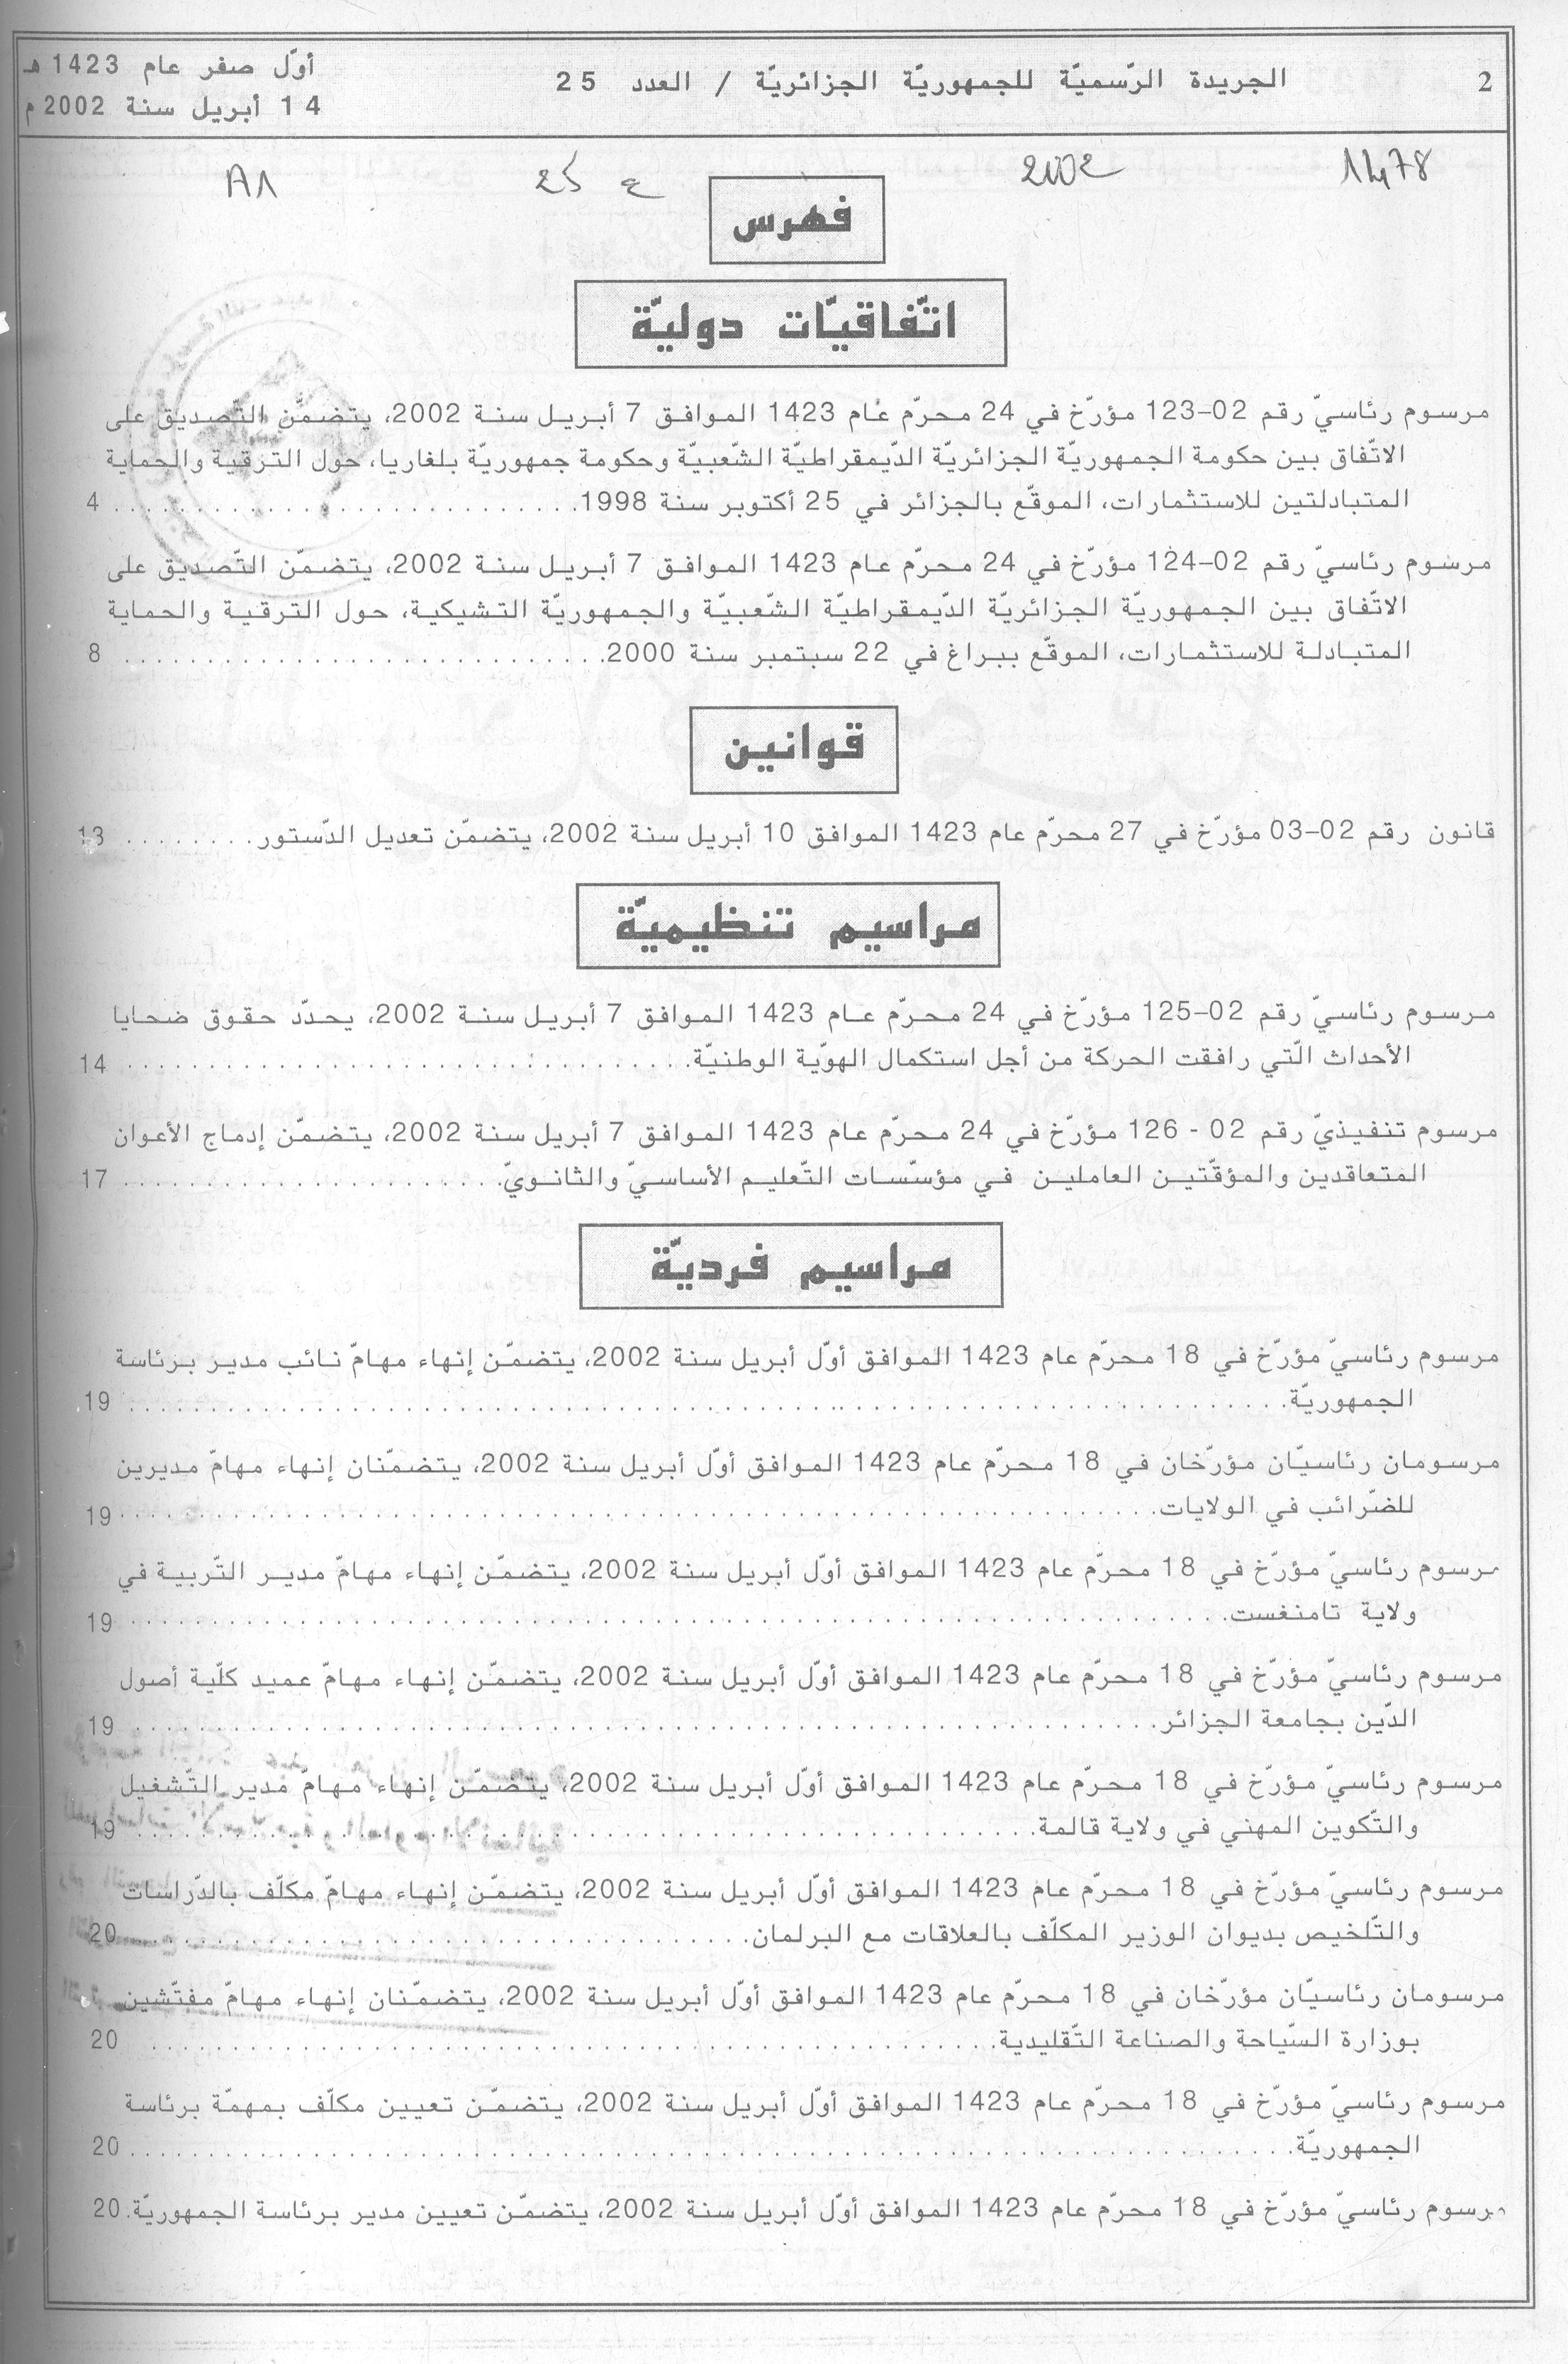 2
الجريدة الرّسميّة للجمهوريّة الجزائريّة / العدد 25
أوّل صفر عام 1423 هـ
14 أبريل سنة 2002 م
1478
2002
ع 25
A1
فهرس
اتّفاقيّات دوليّة
مرسوم رئاسيّ رقم 02-123 مؤرّخ في 24 محرّم عام 1423 الموافق 7 أبريل سنة 2002، يتضمّن التّصديق على
الاتّفاق بين حكومة الجمهوريّة الجزائريّة الدّيمقراطيّة الشّعبيّة وحكومة جمهوريّة بلغاريا، حول الترقية والحماية
المتبادلتين للاستثمارات، الموقّع بالجزائر في 25 أكتوبر سنة 1998. . . . . . . . . . . . . . . . . . . . 4
مرسوم رئاسيّ رقم 02-124 مؤرّخ في 24 محرّم عام 1423 الموافق 7 أبريل سنة 2002، يتضمّن التّصديق على
الاتّفاق بين الجمهوريّة الجزائريّة الدّيمقراطيّة الشّعبيّة والجمهوريّة التشيكية، حول الترقية والحماية
المتبادلة للاستثمارات، الموقّع ببراغ في 22 سبتمبر سنة 2000. . . . . . . . . . . . . . . . . . . . 8
قوانين
قانون رقم 02-03 مؤرّخ في 27 محرّم عام 1423 الموافق 10 أبريل سنة 2002، يتضمّن تعديل الدّستور. . . . . . . . 13
مراسيم تنظيميّة
مرسوم رئاسيّ رقم 02-125 مؤرّخ في 24 محرّم عام 1423 الموافق 7 أبريل سنة 2002، يحدّد حقوق ضحايا
الأحداث الّتي رافقت الحركة من أجل استكمال الهوّية الوطنيّة. . . . . . . . . . . . . . . . . . . . 14
مرسوم تنفيذيّ رقم 02 - 126 مؤرّخ في 24 محرّم عام 1423 الموافق 7 أبريل سنة 2002، يتضمّن إدماج الأعوان
المتعاقدين والمؤقّتين العاملين في مؤسّسات التّعليم الأساسيّ والثانويّ. . . . . . . . . . . . . . . . . . . . 17
مراسيم فرديّة
مرسوم رئاسيّ مؤرّخ في 18 محرّم عام 1423 الموافق أوّل أبريل سنة 2002، يتضمّن إنهاء مهامّ نائب مدير برئاسة
الجمهوريّة. . . . . . . . . . . . . . . . . . . . 19
مرسومان رئاسيّان مؤرّخان في 18 محرّم عام 1423 الموافق أوّل أبريل سنة 2002، يتضمّنان إنهاء مهامّ مديرين
للضّرائب في الولايات. . . . . . . . . . . . . . . . . . . . 19
مرسوم رئاسيّ مؤرّخ في 18 محرّم عام 1423 الموافق أوّل أبريل سنة 2002، يتضمّن إنهاء مهامّ مدير التّربية في
ولاية تامنغست. . . . . . . . . . . . . . . . . . . . 19
مرسوم رئاسيّ مؤرّخ في 18 محرّم عام 1423 الموافق أوّل أبريل سنة 2002، يتضمّن إنهاء مهامّ عميد كلّية أصول
الدّين بجامعة الجزائر. . . . . . . . . . . . . . . . . . . . 19
مرسوم رئاسيّ مؤرّخ في 18 محرّم عام 1423 الموافق أوّل أبريل سنة 2002، يتضمّن إنهاء مهامّ مدير التّشغيل
والتّكوين المهني في ولاية قالمة. . . . . . . . . . . . . . . . . . . . 19
مرسوم رئاسيّ مؤرّخ في 18 محرّم عام 1423 الموافق أوّل أبريل سنة 2002، يتضمّن إنهاء مهامّ مكلّف بالدّراسات
والتّلخيص بديوان الوزير المكلّف بالعلاقات مع البرلمان. . . . . . . . . . . . . . . . . . . . 20
مرسومان رئاسيّان مؤرّخان في 18 محرّم عام 1423 الموافق أوّل أبريل سنة 2002، يتضمّنان إنهاء مهامّ مفتّشين
بوزارة السّياحة والصناعة التّقليدية. . . . . . . . . . . . . . . . . . . . 20
مرسوم رئاسيّ مؤرّخ في 18 محرّم عام 1423 الموافق أوّل أبريل سنة 2002، يتضمّن تعيين مكلّف بمهمّة برئاسة
الجمهوريّة. . . . . . . . . . . . . . . . . . . . 20
مرسوم رئاسيّ مؤرّخ في 18 محرّم عام 1423 الموافق أوّل أبريل سنة 2002، يتضمّن تعيين مدير برئاسة الجمهوريّة. 20